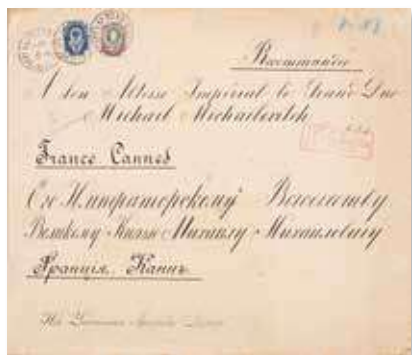 Recommandée
A son Altesse Imperial le Grand Duc
Michail Michailovitch
France Cannes
Его Императорскому Высочеству
Великому Князю Михаилу Михаиловичу
Франція, Каннъ